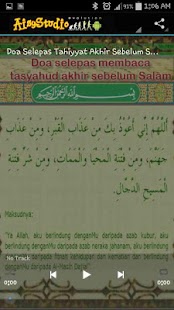 1:06 AM
AlmgStudio
evolution
Doa Selepas Tahiyyat Akhir Sebelum S...
Doa selepas membaca
tasyahud akhir sebelum Salam
بِسْمِ اللهِ الرَّحْمٰنِ الرَّحِيْمِ
اَللّٰهُمَّ إِنِّي أَعُوْذُ بِكَ مِنْ عَذَابِ الْقَبْرِ، وَمِنْ عَذَابِ
جَهَنَّمَ، وَمِنْ فِتْنَةِ الْمَحْيَا وَالْمَمَاتِ، وَمِنْ شَرِّ فِتْنَةِ
الْمَسِيْحِ الدَّجَّالِ.
Maksudnya:
"Ya Allah, aku berlindung denganMu daripada azab kubur, aku
berlindung denganMu daripada azab neraka jahanam, aku berlindung
denganMu daripada fitnah kehidupan dan kematian dan berlindung
denganMu daripada fitnah Al-Masih Dajjal"
No Track
0:00
0:00